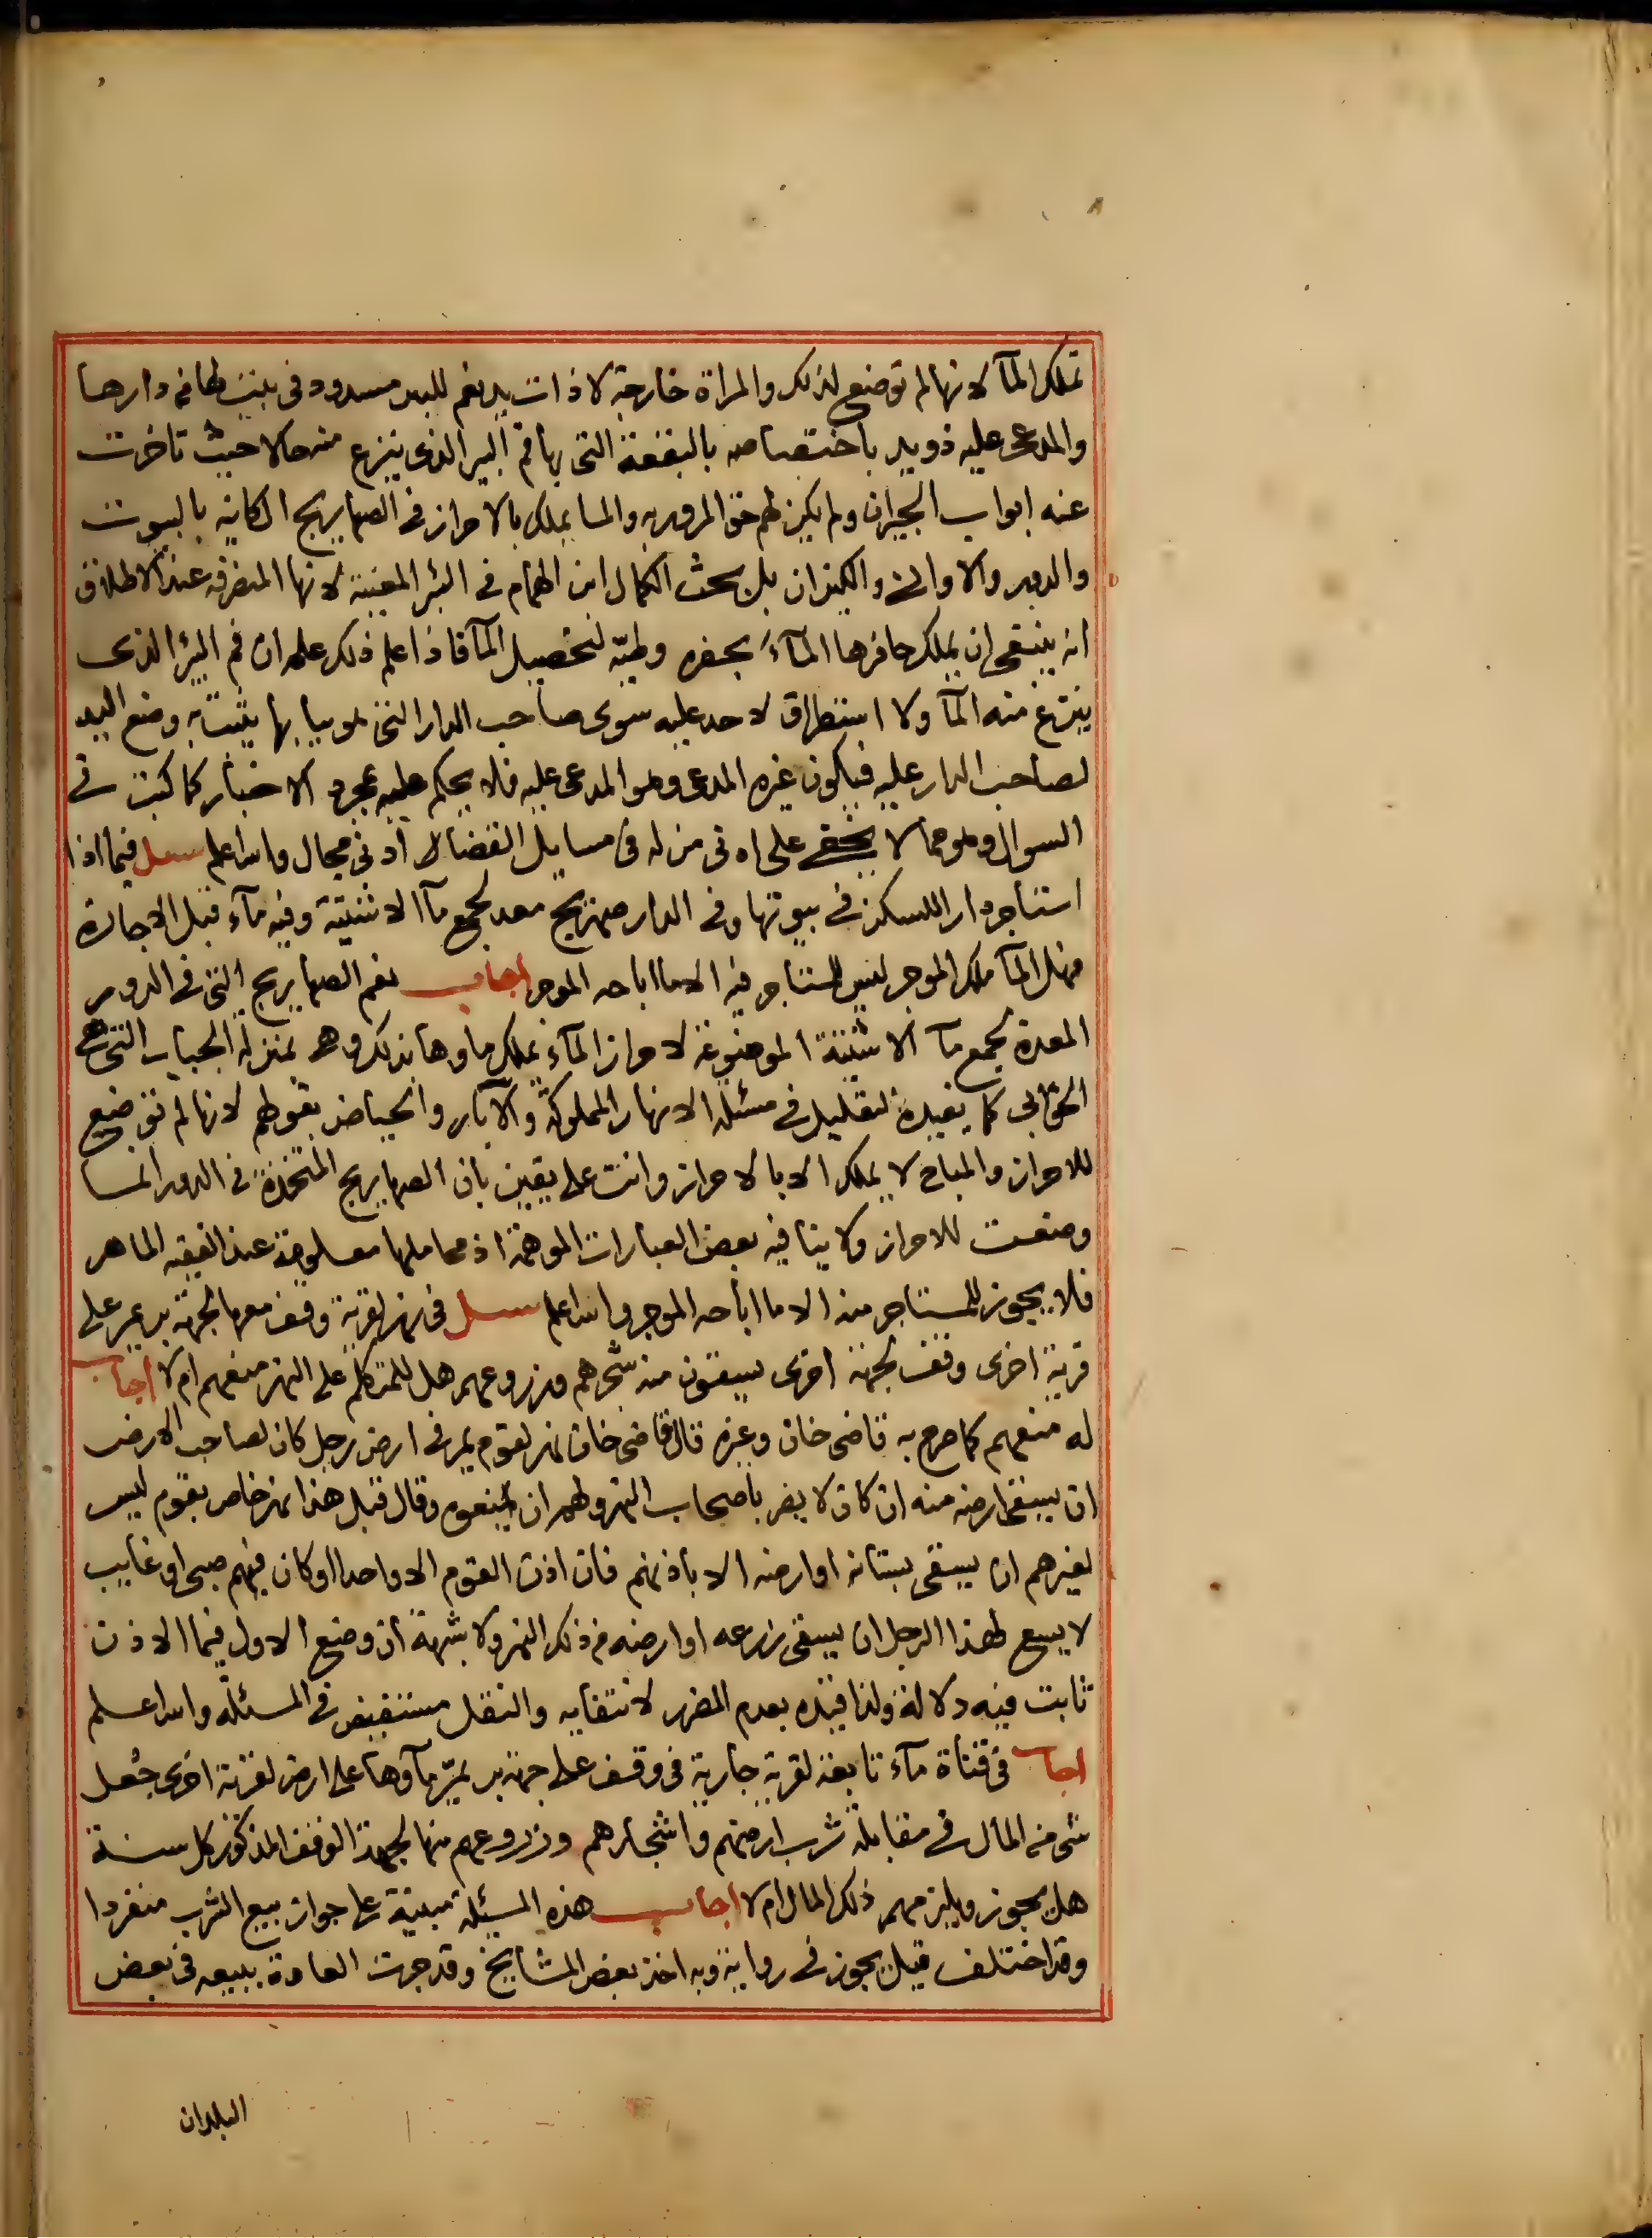 تملك المآ لانها لم توضع لذلك والمراة خارجة لا ذات يد نعم للبير مسدود في بيت لها في دارها
والمدعى عليه ذو يد باختصاصه بالبقعة التي بها فم البير الذي ينزع منه حالا حيث تاخرت
عنه ابواب الجيران ولم يكن لهم حق المرور به والما يملك بالاحراز في الصهاريج الكاينه بالبيوت
والدور والاواني والكيزان بل بحث الكمال ابن الهمام في البئر المعينة لانها المنصرفه عند الاطلاق
انه ينبغي ان يملك حافرها المآء بحفره وطيه لتحصيل المآ فاذا علم ذلك علم ان فم البئر الذي
ينتزع منه المآ ولا استطراق لاحد عليه سوى صاحب الدار التي هو بها يثبت به وضع اليد
لصاحب الدار عليه فيكون غيره المدعى وهو المدعى عليه فلا يحكم عليه بمجرد الاخبار كما كتبت في
السوال وهو مما لا يخفى على ادنى من له في مسايل القضا ادنى مجال والله اعلم سئل فيما اذا
استاجر دارا للسكنى في بيوتها وفي الدار صهريج معد لجمع مآ الاشتية وفيه مآء قبل الاجارة
فهل المآ ملك الموجر ليس للمستاجر فيه الا ما اباحه الموجر اجاب نعم الصهاريج التي في الدور
المعدة لجمع مآ الاشتية الموضوعة لاحراز المآء يملك ماوها بذلك وهي بمنزلة الجباب التي هي
الخوابي كما يفيده تعليل في مسئلة الانهار المملوكة والآبار والحياض بقولهم لانها لم توضع
للاحراز والمباح لا يملك الا بالاحراز وانت على يقين بان الصهاريج المتخذة في الدور انما
وضعت للاحراز ولا ينافيه بعض العبارات الموهمة اذ محاملها معلومة عند الفقيه الماهر
فلا يجوز للمستاجر منه الا ما اباحه الموجر والله اعلم سئل في نهر لقرية وقف معها لجهة بر يمر على
قرية اخرى وقف لجهة اخرى يسقون منه شجرهم وزروعهم هل للمتكلم على النهر منعهم ام لا اجاب
له منعهم كما صرح به قاضي خان وغيره قال قاضي خان نهر لقوم يمر في ارض رجل كان لصاحب الارض
ان يسقي ارضه منه ان كان لا يضر باصحاب النهر ولهم ان يمنعوه وقال قبل هذا نهر خاص بقوم ليس
لغيرهم ان يسقي بستانه او ارضه الا باذنهم فان اذن القوم الا واحدا او كان فيهم صبي او غايب
لا يسع لهذا الرجل ان يسقي زرعه او ارضه من ذلك النهر ولا شبهة ان وضع الاول فيما الاذن
ثابت فيه دلالة ولذا قيده بعدم الضرر لانتفايه والنقل مستفيض في المسئلة والله اعلم
اجاب في قناة مآء تابعة لقرية جارية في وقف على جهة بر يمر مآوها على ارض لقرية اخرى جعل
شى من المال في مقابلة شرب ارضهم واشجارهم وزروعهم منها لجهة الوقف المذكور كل سنة
هل يجوز ويلزمهم ذلك المال ام لا اجاب هذه المسئلة مبنية على جواز بيع الشرب منفردا
وقد اختلف قيل يجوز في رواية وبه اخذ بعض المشايخ وقد جرت العادة ببيعه في بعض
البلدان